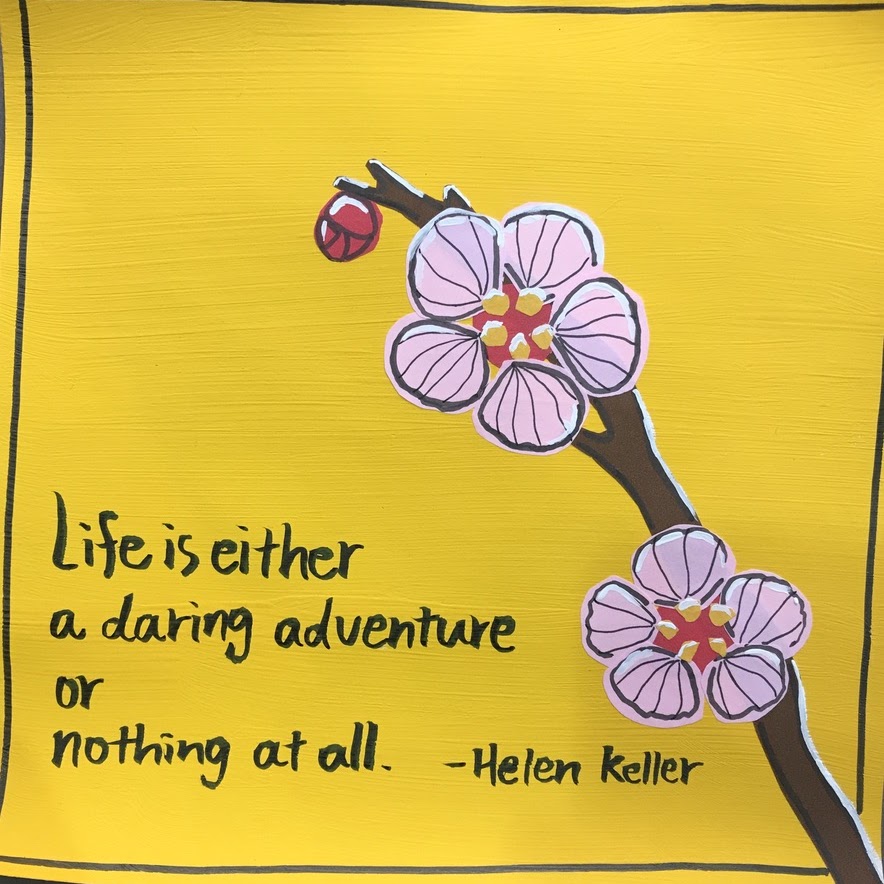 Life is either
a daring adventure
or
nothing at all. -Helen Keller